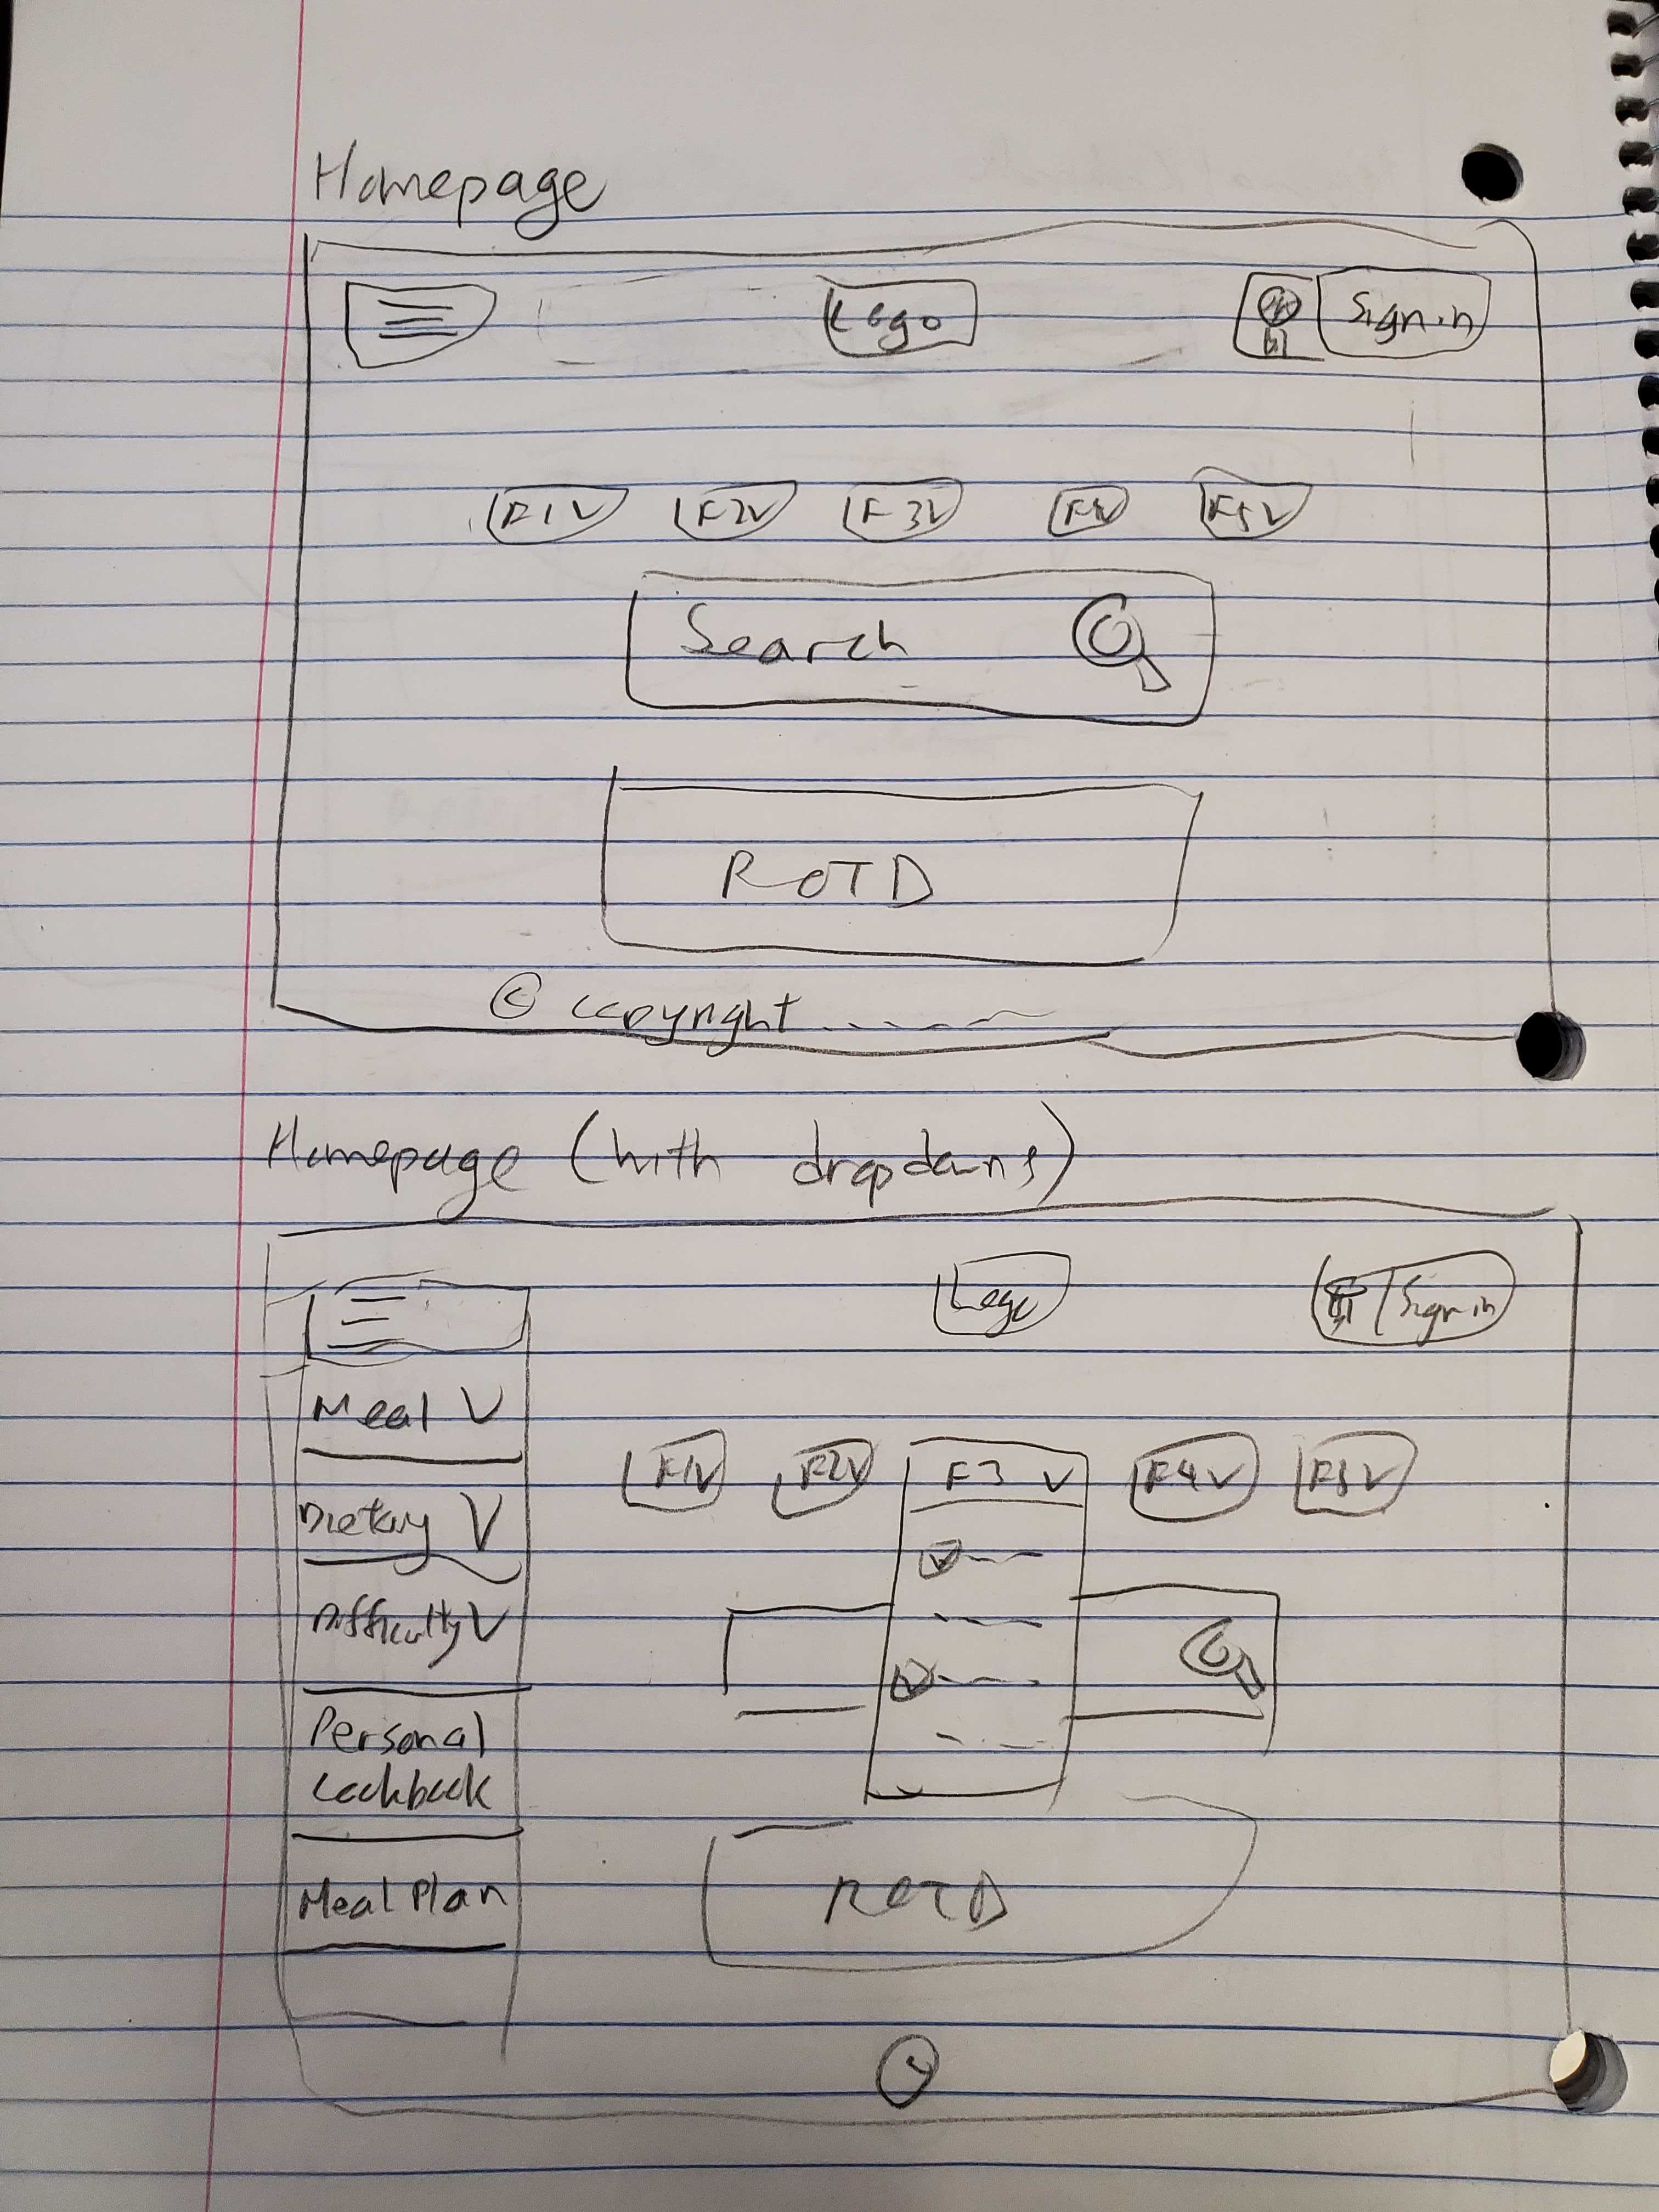 Homepage
Logo Sign in
F1 V F2V F3V F4V F5V
Search
ROTD
© copyright
Homepage (with dropdowns)
Logo Sign in
Meal V
F1V F2V F3 V F4V F5V
Dietary V
Difficulty V
Personal
Cookbook
Meal Plan
ROTD
©